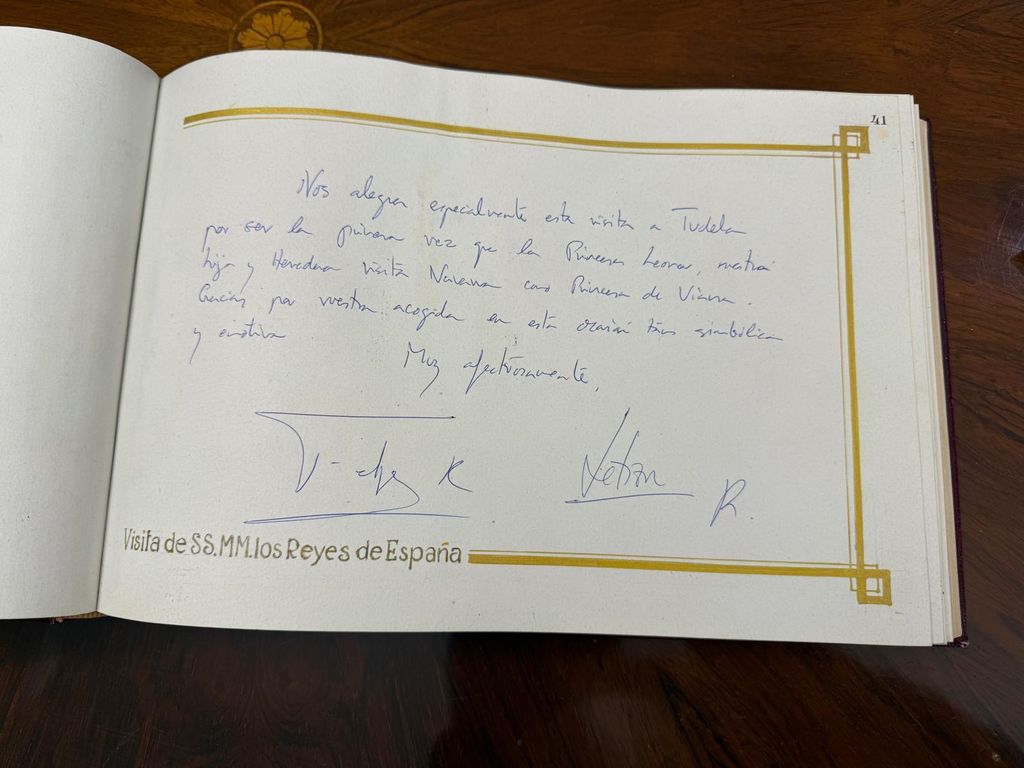 41
Nos alegra especialmente esta visita a Tudela
por ser la primera vez que la Princesa Leonor, nuestra
hija y Heredera visita Navarra como Princesa de Viana.
Gracias por vuestra acogida en esta ocasión tan simbólica
y emotiva
Muy afectuosamente,
Felipe R
Letizia R.
Visita de SS.MM.los Reyes de España